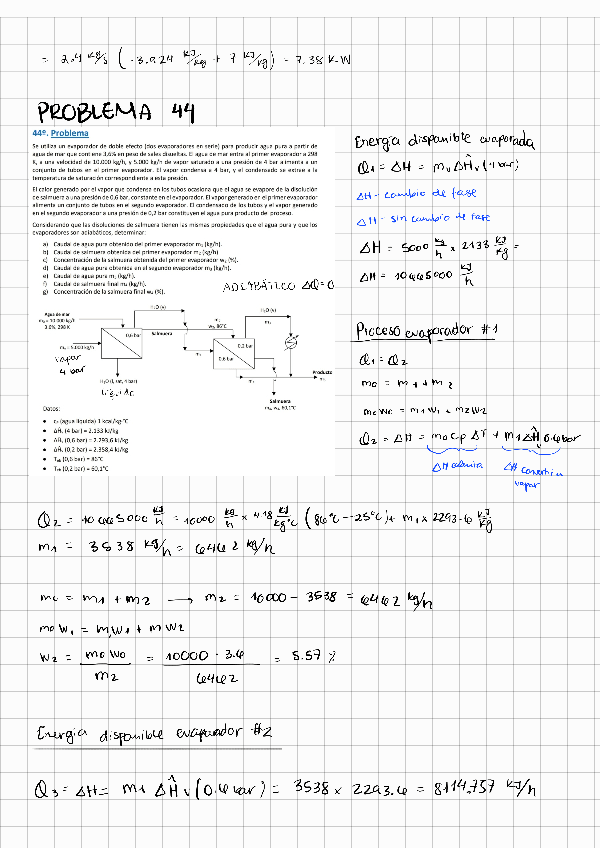 = 2.4 kg/s ( -3.924 kJ/kg + 7 kJ/kg) = 7.38 K.W
PROBLEMA 44
44º. Problema
Se utiliza un evaporador de doble efecto (dos evaporadores en serie) para producir agua pura a partir de
agua de mar que contiene 3,6% en peso de sales disueltas. El agua de mar entra al primer evaporador a 298
K, a una velocidad de 10.000 kg/h, y 5.000 kg/h de vapor saturado a una presión de 4 bar alimenta a un
conjunto de tubos en el primer evaporador. El vapor condensa a 4 bar, y el condensado se extrae a la
temperatura de saturación correspondiente a esta presión.
El calor generado por el vapor que condensa en los tubos ocasiona que el agua se evapore de la disolución
de salmuera a una presión de 0,6 bar, constante en el evaporador. El vapor generado en el primer evaporador
alimenta un conjunto de tubos en el segundo evaporador. El condensado de los tubos y el vapor generado
en el segundo evaporador a una presión de 0,2 bar constituyen el agua pura producto de proceso.
Considerando que las disoluciones de salmuera tienen las mismas propiedades que el agua pura y que los
evaporadores son adiabáticos, determinar:
a) Caudal de agua pura obtenido del primer evaporador m₁ (kg/h).
b) Caudal de salmuera obtenida del primer evaporador m₂ (kg/h)
c) Concentración de la salmuera obtenida del primer evaporador w₂ (%).
d) Caudal de agua pura obtenida en el segundo evaporador m₃ (kg/h).
e) Caudal de agua pura m₅ (kg/h).
f) Caudal de salmuera final m₄ (kg/h).
g) Concentración de la salmuera final w₄ (%).
ADIABÁTICO ΔQ=0
H₂O (v)
H₂O (v)
Agua de mar
m₀ = 10.000 kg/h
3,6%, 298 K
0,6 bar
Salmuera
m₂
w₂, 86°C
m₃
0,2 bar
mᵥ = 5.000 kg/h
vapor
4 bar
m₁
0,6 bar
m₁
Producto
H₂O (l, sat, 4 bar)
líquido
Salmuera
m₄, w₄, 60,1°C
Datos:
• cₚ (agua líquida) 1 kcal/kg·°C
• ΔĤᵥ (4 bar) = 2.133 kJ/kg
• ΔĤᵥ (0,6 bar) = 2.293,6 kJ/kg
• ΔĤᵥ (0,2 bar) = 2.358,4 kJ/kg
• Tₑᵦ (0,6 bar) = 86°C
• Tₑᵦ (0,2 bar) = 60,1°C
Energia disponible evaporada
Q₁ = ΔH = mᵥ ΔĤᵥ (4 bar)
ΔĤ - cambio de fase
ΔH - sin cambio de fase
ΔH = 5000 kg/h × 2133 kJ/kg =
ΔH = 10665000 kJ/h
Proceso evaporador #1
Q₁ = Q₂
m₀ = m₁ + m₂
m₀w₀ = m₁w₁ + m₂w₂
Q₂ = ΔH = m₀Cp ΔT + m₁ΔĤ 0.6 bar
ΔH
ΔH
vapor
Q₂ = 10665000 kJ/h = 10000 kg/h × 4.18 kJ/kg°C (86°C - 25°C) + m₁ × 2293.6 kJ/kg
m₁ = 3538 kg/h = 6462 kg/h
m₀ = m₁ + m₂ → m₂ = 10000 - 3538 = 6462 kg/h
m₀ w₁ = m₁w₁ + m w₂
w₂ = m₀ w₀ / m₂ = 10000 · 3.6 / 6462 = 5.57 %
Energia disponible evaporador #2
Q₃ = ΔH = m₁ ΔĤᵥ (0.6 bar) = 3538 × 2293.6 = 8114.757 kJ/h